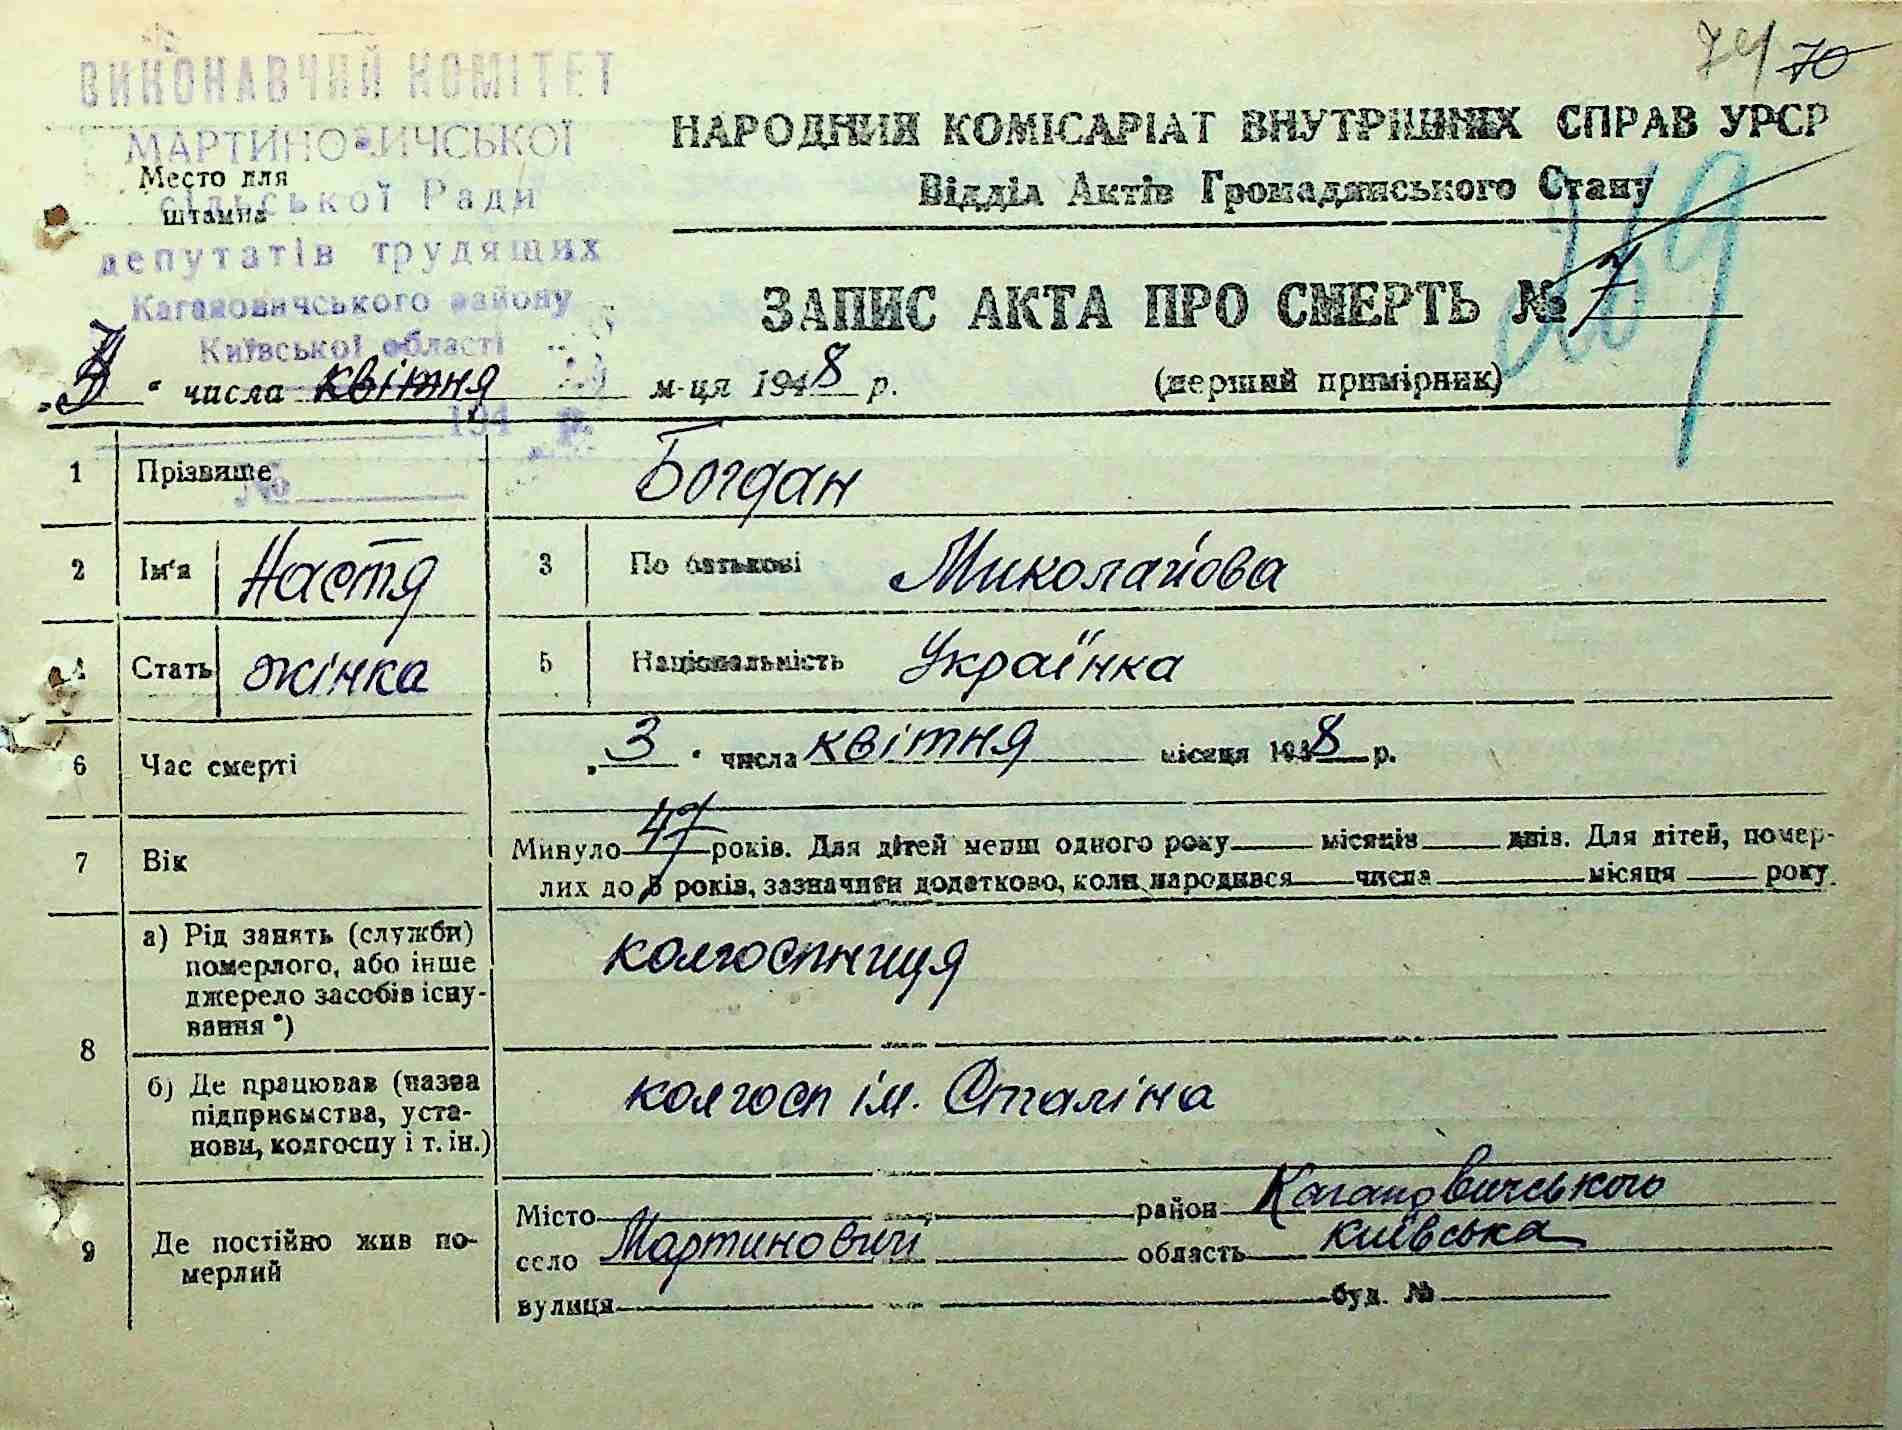 74 70
ВИКОНАВЧИЙ КОМІТЕТ
МАРТИНОВИЧСЬКОЇ
Место для
штампа
сільської Ради
депутатів трудящих
Кагановичського району
Київської області
194 р.
№
НАРОДНИЙ КОМІСАРІАТ ВНУТРІШНІХ СПРАВ УРСР
Відділ Актів Громадянського Стану
ЗАПИС АКТА ПРО СМЕРТЬ № 7
269
"4" числа квітня м-ця 1948 р. (перший примірник)
1 Прізвище Богдан
2 Ім'я Настя 3 По батькові Миколайова
4 Стать жінка 5 Національність Українка
6 Час смерті "3" числа квітня місяця 1948 р.
7 Вік Минуло 47 років. Для дітей менш одного року місяців днів. Для дітей, помер-
лих до 5 років, зазначити додатково, коли народився числа місяця року.
8 а) Рід занять (служби)
померлого, або інше
джерело засобів існу-
вання *)
колгоспниця
б) Де працював (назва
підприємства, уста-
нови, колгоспу і т. ін.)
колгосп ім. Сталіна
9 Де постійно жив по-
мерлий
Місто район Кагановичського
село Мартиновичі область київська
вулиця буд. №